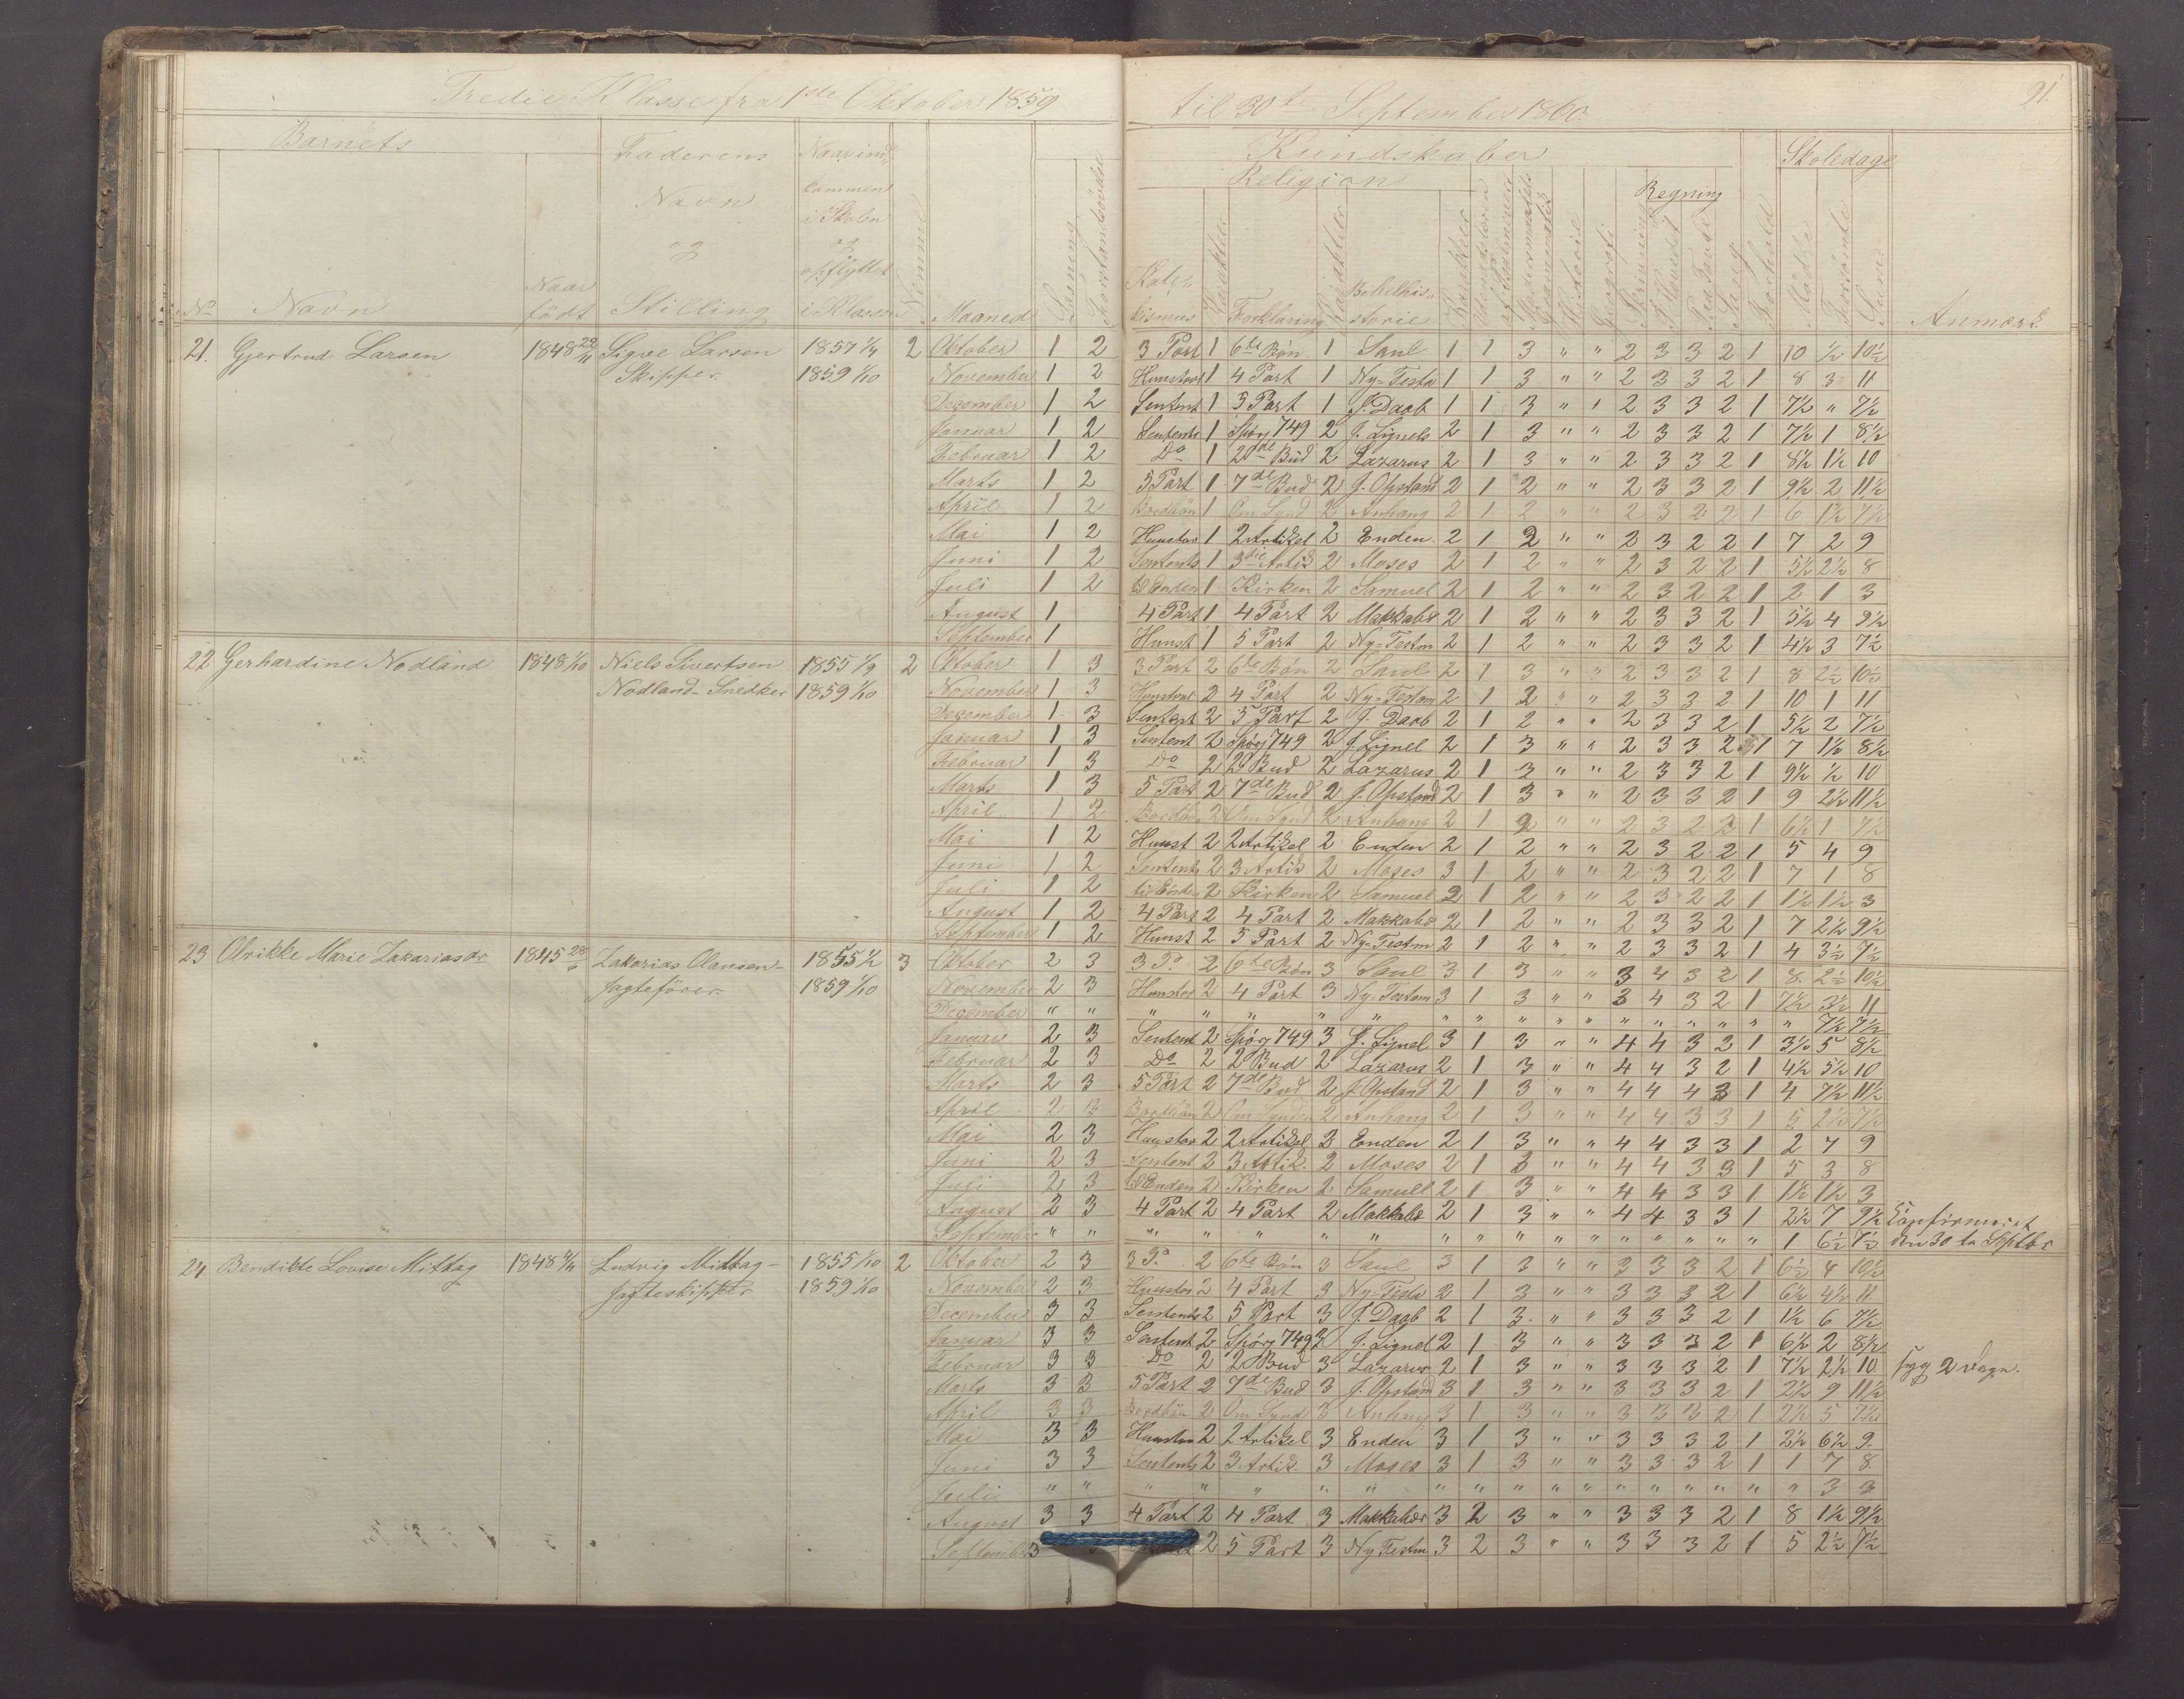 Tredie Klasse fra 1ste Oktober 1859 til 30te September 1860
91.
Barnets
Faderens Navn og Stilling
Naar ind kommen i Skolen og opflyttet i Klassen
Kundskaber
Religion
Regning
Skoledage
No Navn Naar født Maaned Læsning Kate kismus Forklaring Bibelhis storie Historie Geografi Sang Forhold Mødte Forsømte Sum Anmærk.
21. Gjertrud Larsen 1848 22/11 Sigve Larsen 1857 1/4 2 Oktober 1 2 3 Part 1 6te Bøn 1 Saul 1 1 3 " " 2 3 3 2 1 10 ½ 10½
Skipper 1859 1/10 November 1 2 Hunstavl 1 4 Part 1 Ny-Testa 1 1 3 " " 2 3 3 2 1 8 3 11
December 1 2 Sentent 1 5 Part 1 J. Daab 1 1 3 " " 2 3 3 2 1 7½ " 7½
Januar 1 2 Sentents 1 Spørg 749 2 J. Lignels 2 1 3 " " 2 3 3 2 1 7½ 1 8½
Februar 1 2 Do 1 2de Bud 2 Lazarus 2 1 3 " " 2 3 3 2 1 8½ 1½ 10
Marts 1 2 5 Part 1 7de Bud 2 J. Opstand 2 1 2 " " 2 3 3 2 1 9½ 2 11½
April 1 2 Bordbøn 1 Om Synd 2 Anhang 2 1 2 " " 2 3 2 2 1 6 1½ 7½
Mai 1 2 Hunstav 1 2 Artikel 2 Enden 2 1 2 " " 2 3 2 2 1 7 2 9
Juni 1 2 Sentents 1 3die Artik 2 Moses 2 1 2 " " 2 3 2 2 1 5½ 2½ 8
Juli 1 2 til Enden 1 Kirken 2 Samuel 2 1 2 " " 2 3 2 2 1 2 1 3
August 1 4 Part 1 4 Part 2 Makkabæ 2 1 2 " " 2 3 3 2 1 5½ 4 9½
September 1 Hunst 1 5 Part 2 Ny-Testm 2 1 2 " " 2 3 3 2 1 4½ 3 7½
22 Gerhardine Nodland 1848 1/10 Niels Sivertsen 1855 1/9 2 Oktober 1 3 3 Part 2 6te Bøn 2 Saul 2 1 3 " " 2 3 3 2 1 8 2½ 10½
Nodland - Snedker 1859 1/10 November 1 3 Hunstavl 2 4 Part 2 Ny-Testam 2 1 2 " " 2 3 3 2 1 10 1 11
December 1 3 Sentent 2 5 Part 2 J. Daab 2 1 2 " " 2 3 3 2 1 5½ 2 7½
Januar 1 3 Sentent 2 Spørg 749 2 J. Lignel 2 1 3 " " 2 3 3 2 1 7 1½ 8½
Februar 1 3 Do 2 2 Bud 2 Lazarus 2 1 3 " " 2 3 3 2 1 9½ ½ 10
Marts 1 3 5 Part 2 7de Bud 2 J. Opstand 2 1 3 " " 2 3 3 2 1 9 2½ 11½
April 1 2 Bordbøn 2 Om Synd 2 Anhang 2 1 2 " " 2 3 2 2 1 6½ 1 7½
Mai 1 2 Hunst 2 2 Artikel 2 Enden 2 1 2 " " 2 3 2 2 1 5 4 9
Juni 1 2 Sentents 2 3 Artik 2 Moses 3 1 2 " " 2 3 2 2 1 7 1 8
Juli 1 2 til Enden 2 Kirken 2 Samuel 2 1 2 " " 2 3 2 2 1 1½ 1½ 3
August 1 2 4 Part 2 4 Part 2 Makkabæ 2 1 2 " " 2 3 3 2 1 7 2½ 9½
September 1 2 Hunst 2 5 Part 2 Ny-Testm 2 1 2 " " 2 3 3 2 1 4 3½ 7½
23 Olrikke Marie Zakariasdr 1845 Zakarias Olausen - 1855 1/2 3 Oktober 2 3 3 P. 2 6te Bøn 3 Saul 3 1 3 " " 3 4 3 2 1 8 2½ 10½
Jagtefører 1859 1/10 November 2 3 Hunstav 2 4 Part 3 Ny-Testam 3 1 3 " " 3 4 3 2 1 7½ 3½ 11
December " " " " " " " " " " " " " " " " " " " 7½ 7½
Januar 2 3 Sentent 2 Spørg 749 3 J. Lignel 3 1 3 " " 4 4 3 2 1 3½ 5 8½
Februar 2 3 Do 2 2 Bud 2 Lazarus 2 1 3 " " 4 4 3 2 1 4½ 5½ 10
Marts 2 3 5 Part 2 7de Bud 2 J. Opstand 2 1 3 " " 4 4 4 3 1 4 7½ 11½
April 2 3 Bordbøn 2 Om Synden 2 Anhang 2 1 3 " " 4 4 3 3 1 5 2½ 7½
Mai 2 3 Hunstav 2 2 Artikel 2 Enden 2 1 3 " " 4 4 3 3 1 2 7 9
Juni 2 3 Sentent 2 3 Artik. 2 Moses 2 1 3 " " 4 4 3 3 1 5 3 8
Juli 2 3 til Enden 2 Kirken 2 Samuel 2 1 3 " " 4 4 3 3 1 1½ 1½ 3
August 2 3 4 Part 2 4 Part 2 Makkabæ 2 1 3 " " 4 4 3 3 1 2½ 7 9½ Confirmeret
September " " " " " " " " " " " " " " " " " " 1 6½ 7½ den 30te Septbr
24 Bendikte Lovise Mittag 1848 Ludvig Mittag - 1855 1/10 2 Oktober 2 3 3 P. 2 6te Bøn 3 Saul 3 1 3 " " 3 3 3 2 1 6½ 4 10½
Jagteskipper 1859 1/10 November 2 3 Hunstav 2 4 Part 3 Ny-Testa 2 1 3 " " 3 3 3 2 1 6½ 4½ 11
December 3 3 Sentents 2 5 Part 3 J. Daab 2 1 3 " " 3 3 3 2 1 1½ 6 7½
Januar 3 3 Sentent 2 Spørg 749 3 J. Lignel 2 1 3 " " 3 3 3 2 1 6½ 2 8½
Februar 3 3 Do 2 2 Bud 3 Lazarus 2 1 3 " " 3 3 3 2 1 7½ 2½ 10 syg 2 dage.
Marts 3 3 5 Part 2 7de Bud 3 J. Opstand 3 1 3 " " 3 3 3 2 1 2½ 9 11½
April 3 3 Bordbøn 2 Om Synd 3 Anhang 3 1 3 " " 3 3 3 2 1 2½ 5 7½
Mai 3 3 Hunstav 2 2 Artikel 3 Enden 3 1 3 " " 3 3 3 2 1 2½ 6½ 9
Juni 3 3 Sentents 2 3 Artik. 3 Moses 3 1 3 " " 3 3 3 2 1 1 7 8
Juli " " " " " " " " " " " " " " " " " " " 3 3
August 3 3 4 Part 2 4 Part 3 Makkabær 3 2 3 " " 3 3 3 2 1 8 1½ 9½
September 3 2 5 Part 3 Ny Testm 3 2 3 " " 3 3 3 2 1 5 2½ 7½